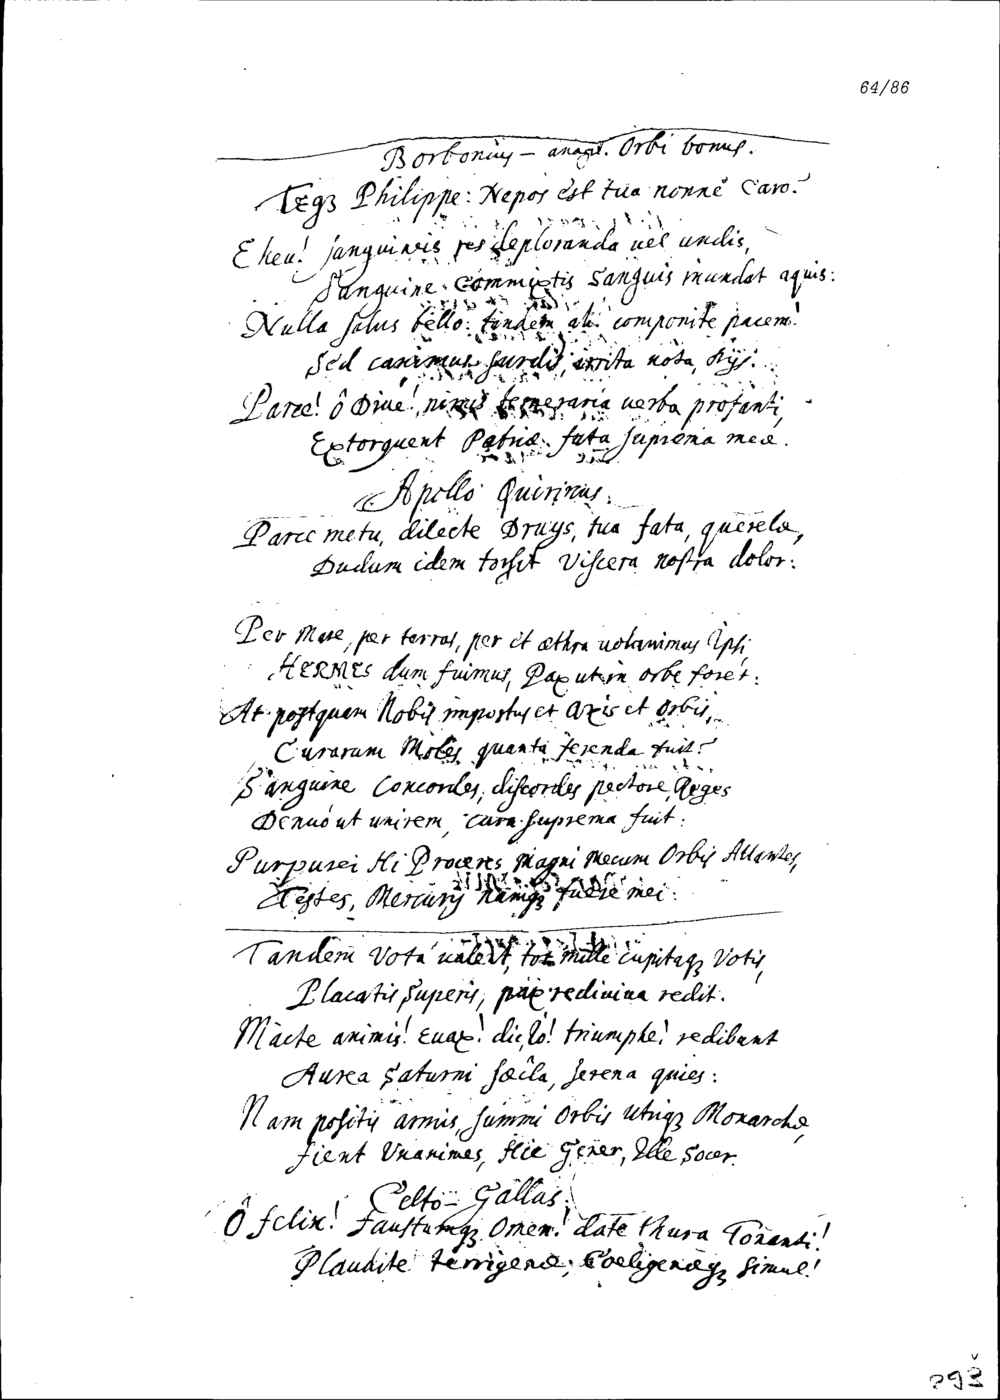 64/86
Borbonius – anagr. Orbi bonus.
Teqꝫ Philippe: Nepos est tua nonne Caro?
Eheu! sanguineis res deploranda vel undis,
Sanguine commixtis Sanguis inundat aquis:
Nulla salus bello: tandem ah! componite pacem!
Sed canimus surdis, irrita vota, Dijs.
Parce! ô Dive! nimis temeraria verba profanti,
Extorquent Patriæ fata suprema meæ.
Apollo Quirinus.
Parce metu, dilecte Druys, tua fata, querelæ,
Dudum idem torsit Viscera nostra dolor:
Per Mare, per terras, per et æthra volavimus Ipsi,
HERMES dum fuimus, Pax ut in orbe foret:
At postquam Nobis impostus et Axis et Orbis,
Curarum Moles quanta ferenda fuit?
Sanguine Concordes, discordes pectore, Reges
Denuò ut unirem, cura suprema fuit:
Purpurei Hi Proceres Magni Mecum Orbis Atlantes,
Testes, Mercurij namqꝫ fuere mei:
Tandem Vota valent, tot mille cupitaqꝫ Votis,
Placatis Superis, pax rediviva redit.
Macte animis! Evax! dic, Io! triumphe! redibunt
Aurea Saturni sæcla, serena quies:
Nam positis armis, summi Orbis utriqꝫ Monarchæ,
fient Vnanimes, Hic Gener, Ille Socer.
Celto-Gallus.
Ô felix! Faustumqꝫ Omen! date thura Tonanti!
Plaudite terrigenæ, Coeligenæqꝫ simul!
293